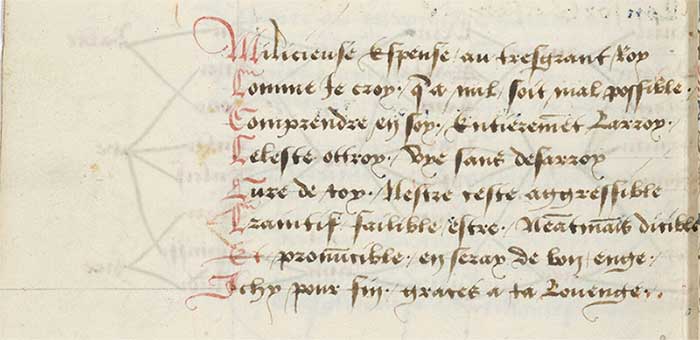 Miliciense Espense / au tresgrant Roy
Comme Je croy · q̃ a nul / soit mal possible ·
Comprendre / en soy · Entieremẽt Larroy ·
Celeste ottroy · Vye sans desarroy
Cure de toy · Nestre ceste aggressible
failible / estre · Neãtmais dicible
Et pronũcible · en seray de bon enge ·
Ichy pour fin · graces a ta Louenge ··